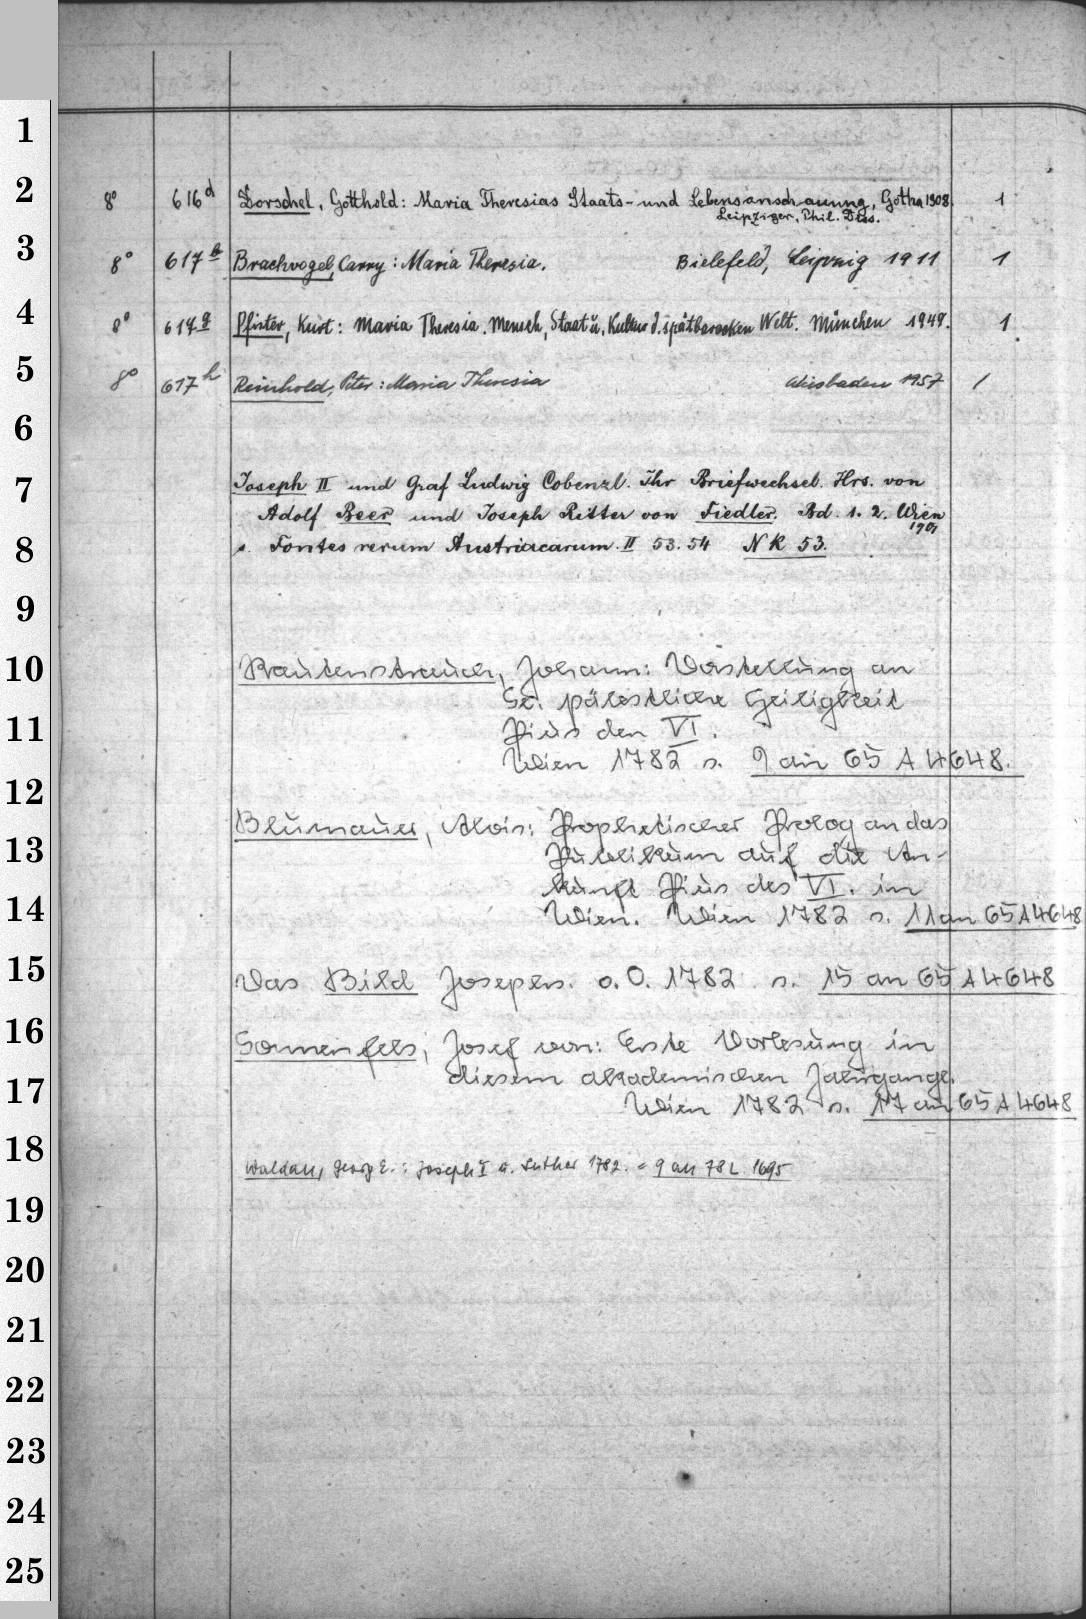 1
2
8° 616d Dorschel, Gotthold: Maria Theresias Staats- und Lebensanschauung, Gotha 1908. 1
Leipziger, Phil. Diss.
3
8° 617 Brachvogel, Carry: Maria Theresia. Bielefeld, Leipzig 1911 1
4
8° 617g Pfister, Kurt: Maria Theresia. Mensch, Staat u. Kultur d. spätbarocken Welt. München 1949. 1
5
8° 617h Reinhold, Peter: Maria Theresia Wiesbaden 1957 1
6
7
Joseph II und Graf Ludwig Cobenzl. Ihr Briefwechsel. Hrs. von
Adolf Beer und Joseph Ritter von Fiedler. Bd. 1. 2. Wien
1901
8
s. Fontes rerum Austriacarum. II 53. 54 NK 53.
9
10
Rautenstrauch, Johann: Vorstellung an
Se. päbstliche Heiligkeit
11
Pius den VI.
Wien 1782 s. 9 an 65 A 4648.
12
Blumauer, Alois: Prophetischer Prolog an das
13
Publikum auf die An-
kunft Pius des VI. in
14
Wien. Wien 1782 s. 11 an 65 A 4648
15
Das Bild Josephs. o.O. 1782 s. 15 an 65 A 4648
16
Sonnenfels, Josef von: Erste Vorlesung in
diesem akademischen Jahrgange.
17
Wien 1782 s. 17 an 65 A 4648
18
Waldau, Georg E.: Joseph II u. Luther 1782. = 9 an 78 L 1695
19
20
21
22
23
24
25